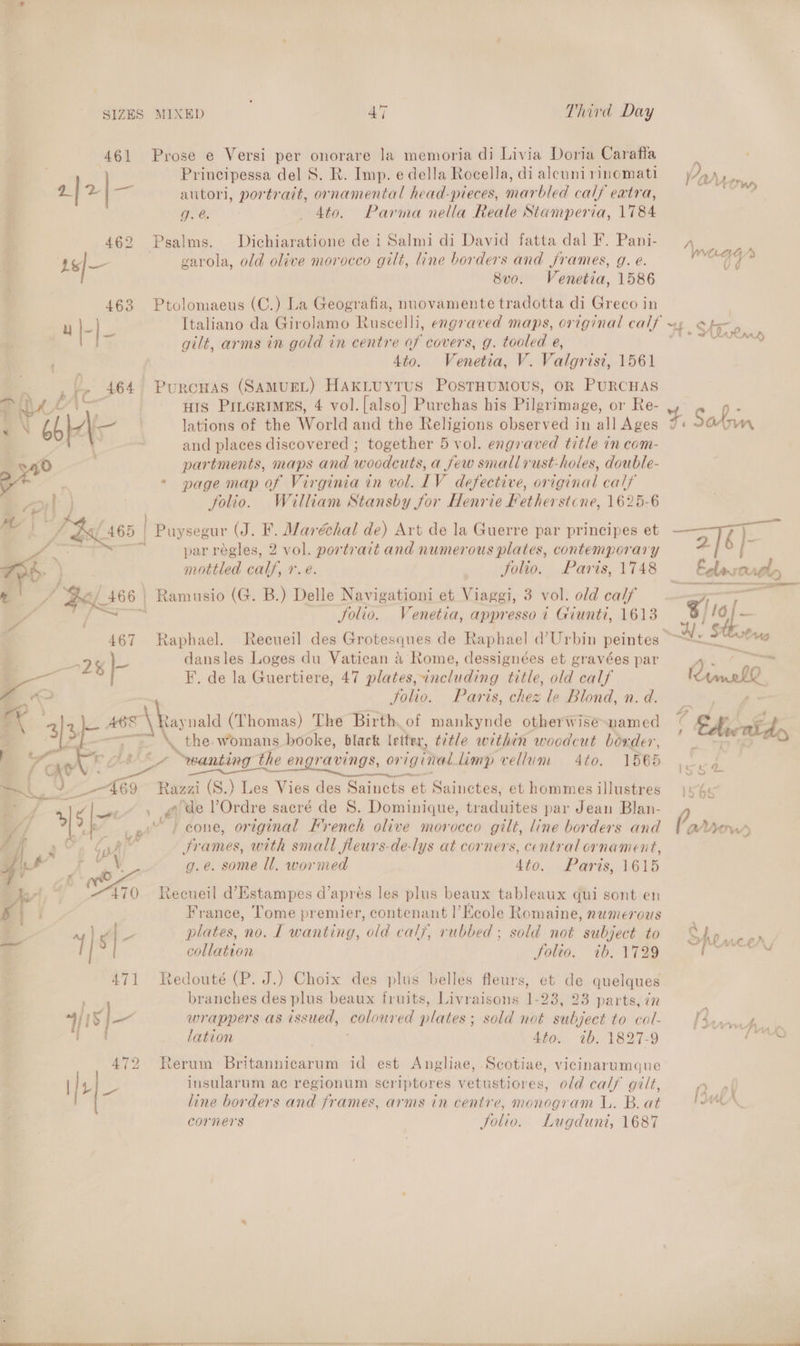 SIZES MIXED 47 Third Day
461 Prose e Versi per onorare la memoria di Livia Doria Caraffa
Principessa del S. R. Imp. e della Rocella, di alcuni rinomati
autori, portrait, ornamental head-pieces, marbled calf extra,
g. e. 4to. Parma nella Reale Stamperia, 1784
2|2|— Parsons
462 Psalms. Dichiaratione de i Salmi di David fatta dal F. Pani-
garola, old olive morocco gilt, line borders and frames, g. e.
8vo. Venetia, 1586
18/— Maggs
463 Ptolomaeus (C.) La Geografia, nuovamente tradotta di Greco in
Italiano da Girolamo Ruscelli, engraved maps, original calf
gilt, arms in gold in centre of covers, g. tooled e,
4to. Venetia, V. Valgrisi, 1561
4|-|-
464 PURCHAS (SAMUEL) HAKLUYTUS POSTHUMOUS, OR PURCHAS
HIS PILGRIMES, 4 vol. [also] Purchas his Pilgrimage, or Re-
lations of the World and the Religions observed in all Ages
and places discovered ; together 5 vol. engraved title in com-
partments, maps and woodcuts, a few small rust-holes, double-
page map of Virginia in vol. IV defective, original calf
folio. William Stansby for Henrie Fetherstone, 1625-6
F. Sabin
465 Puysegur (J. F. Maréchal de) Art de la Guerre par principes et
par règles, 2 vol. portrait and numerous plates, contemporary
mottled calf, r. e. folio. Paris, 1748
2|6|- Edwards
466 Ramusio (G. B.) Delle Navigationi et Viaggi, 3 vol. old calf
folio. Venetia, appresso i Giunti, 1613
8|10|—
467 Raphael. Recueil des Grotesques de Raphael d'Urbin peintes
dans les Loges du Vatican à Rome, dessignées et gravées par
F. de la Guertiere, 47 plates, including title, old calf
folio. Paris, chez le Blond, n. d.
28|- Rimell
468 Raynald (Thomas) The Birth of mankynde otherwise named
the womans booke, black letter, title within woodcut border,
wanting the engravings, original limp vellum 4to. 1565
3|3|- Edwards
469 Razzi (S.) Les Vies des Saincts et Sainctes, et hommes illustres
de l'Ordre sacré de S. Dominique, traduites par Jean Blan-
cone, original French olive morocco gilt, line borders and
frames, with small fleurs-de-lys at corners, central ornament,
g. e. some ll. wormed 4to. Paris, 1615
Parsons
470 Recueil d'Estampes d'après les plus beaux tableaux qui sont en
France, Tome premier, contenant l'École Romaine, numerous
plates, no. I wanting, old calf, rubbed ; sold not subject to
collation folio. ib. 1729
Spencer
471 Redouté (P. J.) Choix des plus belles fleurs, et de quelques
branches des plus beaux fruits, Livraisons 1-23, 23 parts, in
wrappers as issued, coloured plates ; sold not subject to col-
lation 4to. ib. 1827-9
472 Rerum Britannicarum id est Angliae, Scotiae, vicinarumque
insularum ac regionum scriptores vetustiores, old calf gilt,
line borders and frames, arms in centre, monogram L. B. at
corners folio. Lugduni, 1687